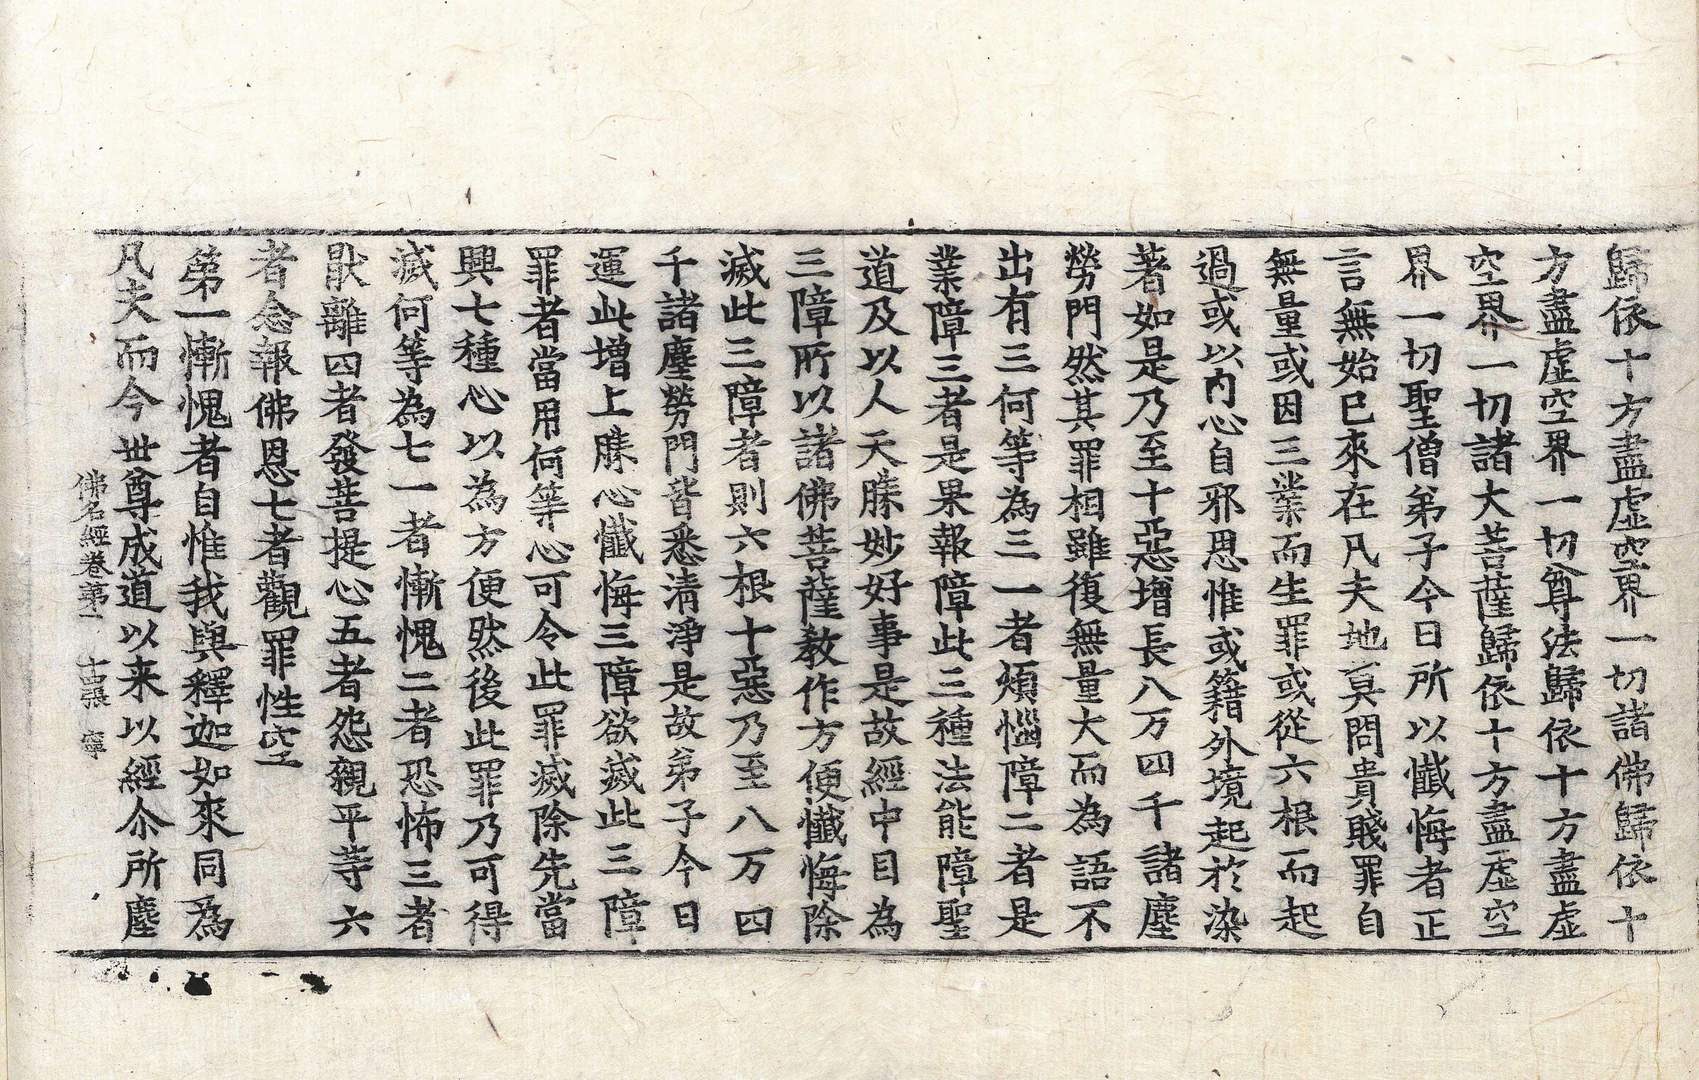 歸依十方盡虛空界一切諸佛歸依十
方盡虛空界一切尊法歸依十方盡虛
空界一切諸大菩薩歸依十方盡虛空
界一切聖僧弟子今日所以懺悔者正
言無始已來在凡夫地莫問貴賤罪自
無量或因三業而生罪或從六根而起
過或以內心自邪思惟或籍外境起於染
著如是乃至十惡增長八万四千諸塵
勞門然其罪相雖復無量大而為語不
出有三何等為三一者煩惱障二者是
業障三者是果報障此三種法能障聖
道及以人天勝妙好事是故經中目為
三障所以諸佛菩薩教作方便懺悔除
滅此三障者則六根十惡乃至八万四
千諸塵勞門皆悉清淨是故弟子今日
運此增上勝心懺悔三障欲滅此三障
罪者當用何等心可令此罪滅除先當
興七種心以為方便然後此罪乃可得
滅何等為七一者慚愧二者恐怖三者
猒離四者發菩提心五者怨親平等六
者念報佛恩七者觀罪性空
第一慚愧者自惟我與釋迦如來同為
凡夫而今世尊成道以来以經尒所塵
佛名經卷第一 十四張 寧